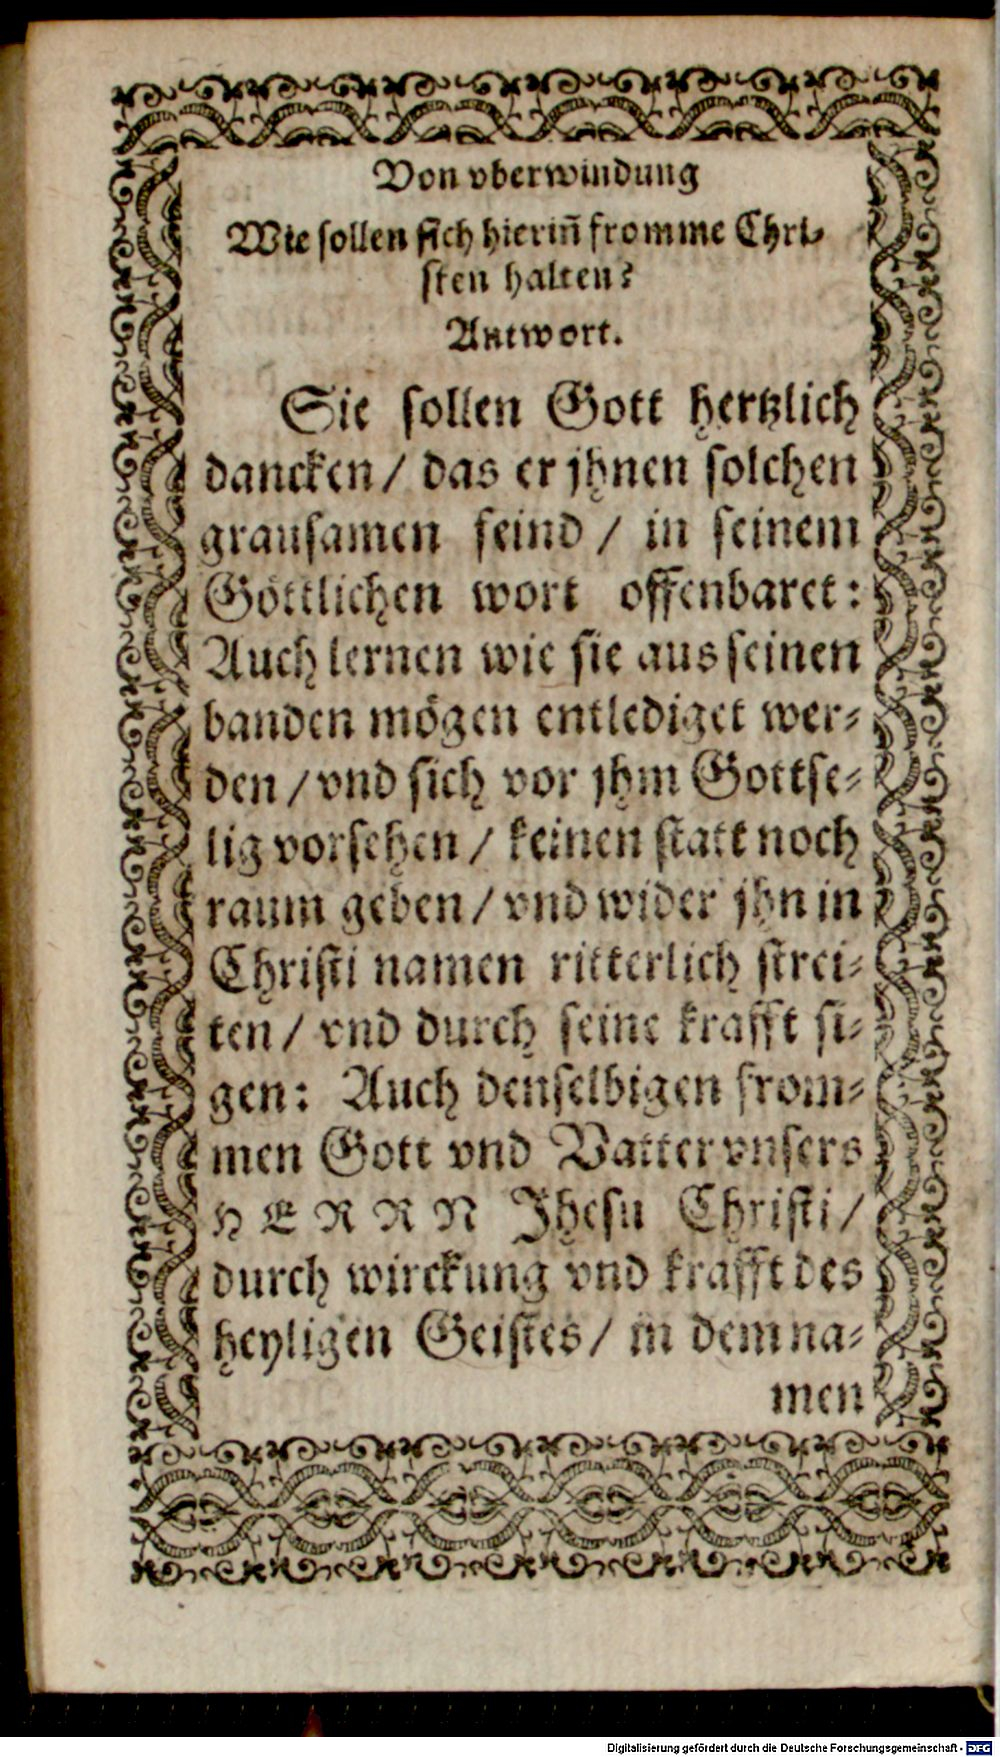 Von vberwindung
Wie sollen sich hierin̄ fromme Chri-
sten halten?
Antwort.
Sie sollen Gott hertzlich
dancken / das er jhnen solchen
grausamen feind / in seinem
Göttlichen wort offenbaret:
Auch lernen wie sie aus seinen
banden mögen entlediget wer-
den / vnd sich vor jhm Gottse-
lig vorsehen / keinen statt noch
raum geben / vnd wider jhn in
Christi namen ritterlich strei-
ten / vnd durch seine krafft si-
gen: Auch denselbigen from-
men Gott vnd Vatter vnsers
HERRN Jhesu Christi /
durch wirckung vnd krafft des
heyligen Geistes / in dem na-
men
Digitalisierung gefördert durch die Deutsche Forschungsgemeinschaft - DFG